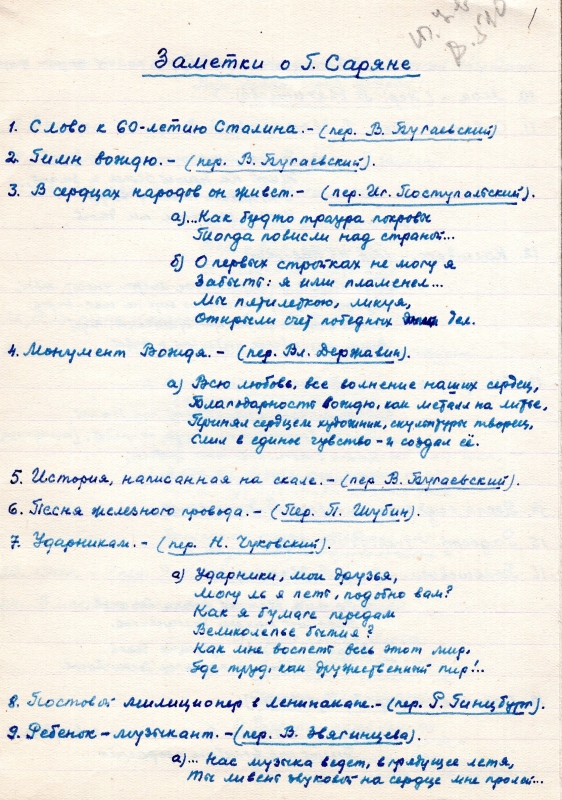 1
Заметки о Г. Саряне
1. Слово к 60-летию Сталина. – (пер. В. Бугаевский)
2. Гимн вождю. – (пер. В. Бугаевский).
3. В сердцах народов он живет. – (пер. Иг. Поступальский).
а)... Как будто траура покровы
Тогда повисли над страной...
б) О первых стройках не могу я
Забыть: я ими пламенел...
Мы пятилеткою, ликуя,
Открыли счет победных дел.
4. Монумент Вождя. – (пер. Вл. Державин).
а) Всю любовь, все волнение наших сердец,
Благодарность вождю, как металл на литье,
Принял сердцем художник, скульптуры творец,
Слил в единое чувство – и создал её.
5. История, написанная на скале. – (пер. В. Бугаевский).
6. Песня железного провода. – (Пер. П. Шубин).
7. Ударникам. – (пер. Н. Чуковский).
а) Ударники, мои друзья,
Могу ль я петь, подобно вам?
Как я бумаге передам
Великолепье бытия?
Как мне воспеть весь этот мир,
Где труд, как дружественный пир!..
8. Постовой милиционер в Ленинакане. – (пер. Р. Гинцбург).
9. Ребенок – музыкант. – (пер. В. Звягинцева).
а)... Нас музыка ведет, в грядущее летя,
Ты ливень звуковой на сердце мне пролей...